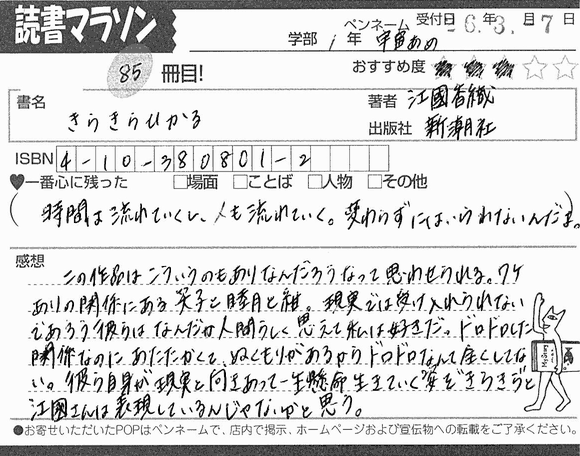 読書マラソン
学部 1年 ペンネーム 宇宙あめ 受付日 -6年3月-7日
85 冊目!
おすすめ度 ★★★☆☆
書名 きらきらひかる
著者 江國香織
出版社 新潮社
ISBN 4-10-380801-2
♥一番心に残った □場面 □ことば □人物 □その他
(時間は流れていくし、人も流れていく。変わらずにはいられないんだよ。
感想
この作品はこういうのもありなんだろうなって思わせられる。ワケ
ありの関係にある笑子と睦月と紺。現実では受け入れられない
であろう彼らはなんだか人間らしく思えて私は好きだ。ドロドロした
関係なのにあたたかくて、ぬくもりがあるからドロドロなんて全くしてな
い。彼ら自身が現実と向きあって一生懸命生きていく姿を"きらきら"と
江國さんは表現しているんじゃないかと思う。
●お寄せいただいたPOPはペンネームで、店内で掲示、ホームページおよび宣伝物への転載をご了承ください。